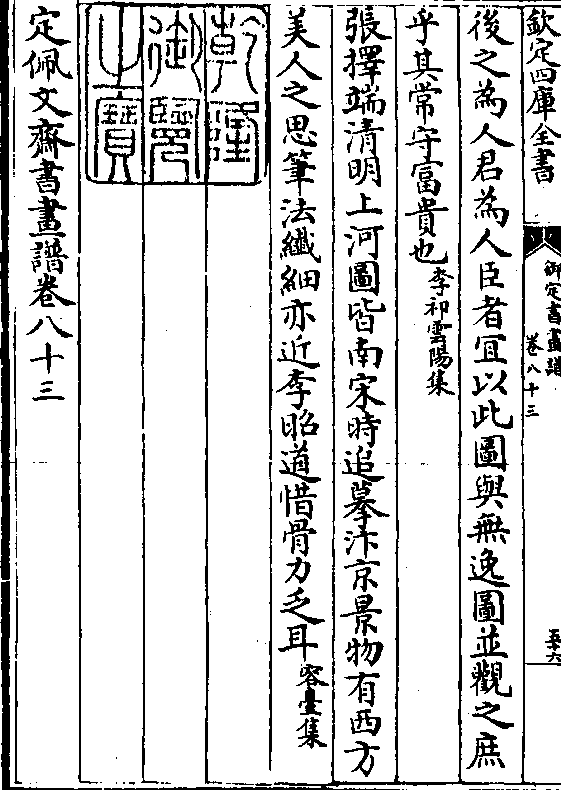 欽定四庫全書
御定書畫譜
卷八十三
五十六
後之為人君為人臣者宜以此圖與無逸圖並觀之庶
乎其常守富貴也李祁雲陽集
張擇端清明上河圖皆南宋時追摹汴京景物有西方
美人之思筆法纖細亦近李昭道惜骨力乏耳容臺集
乾隆
御覽
之寶
定佩文齋書畫譜卷八十三